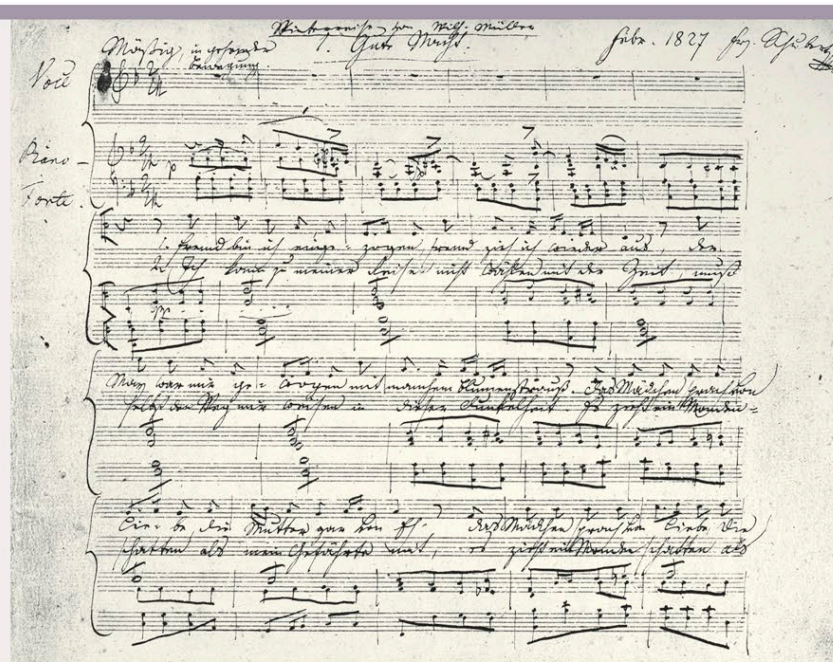 Winterreise von Wilh. Müller
Mäßig, in gehender 1. Gute Nacht. Febr. 1827 Frz. Schubert
Bewegung.
Voce
Piano-
Forte.
1. Fremd bin ich einge- zogen, fremd zieh ich wieder aus, der
2. Ich kann zu meiner Reise nicht wählen mit der Zeit, muß
May war mir ge- wogen mit manchem Blumenstrauß. Das Mädchen sprach von
selbst den Weg mir weisen in dieser Dunkelheit. Es zieht ein Monden-
Lie- be die Mutter gar von Eh- das Mädchen sprach von Liebe die
schatten als mein Gefährte mit, es zieht ein Mondenschatten als